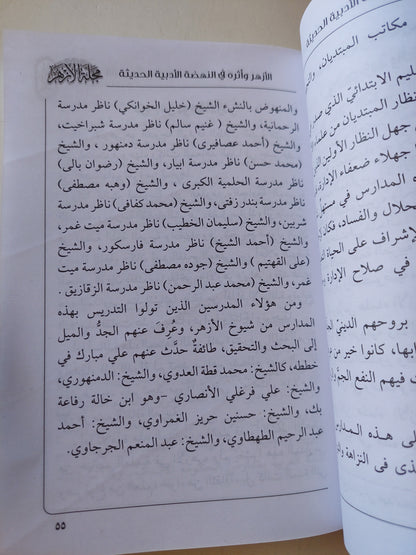 مجلة الأزهر
الأزهر وأثره في النهضة الأدبية الحديثة
والمنهوض بالنشء الشيخ (خليل الخوانكي) ناظر مدرسة
الرحمانية، والشيخ ( غنيم سالم) ناظر مدرسة شبراخيت،
والشيخ (أحمد عصافيري) ناظر مدرسة دمنهور ، والشيخ
(محمد حسن) ناظر مدرسة ابيار، والشيخ (رضوان بالى)
ناظر مدرسة الحلمية الكبرى ، والشيخ (وهبه مصطفى)
ناظر مدرسة بندر زفتى، والشيخ (محمد كفافى) ناظر مدرسة
شربين، والشيخ (سليمان الخطيب) ناظر مدرسة ميت غمر،
والشيخ (أحمد الشيخ) ناظر مدرسة فارسكور، والشيخ
(على القهتيم ) والشيخ (جوده مصطفى) ناظر مدرسة ميت
غمر، والشيخ (محمد عبد الرحمن) ناظر مدرسة الزقازيق .
ومن هؤلاء المدرسين الذين تولوا التدريس بهذه
المدارس من شيوخ الأزهر، وعُرِفَ عنهم الجدُّ والميل
إلى البحث والتحقيق، طائفةٌ حدَّث عنهم علي مبارك في
خططه، كالشيخ: محمد قطة العدوي، والشيخ: الدمنهوري،
والشيخ: علي فرغلي الأنصاري -وهو ابن خالة رفاعة
بك، والشيخ: حسنين حريز الغمراوي، والشيخ: أحمد
عبد الرحيم الطهطاوي، والشيخ: عبد المنعم الجرجاوي.
٥٥
الأدبية الحديثة
مكاتب المبتديان، وال
ليم الابتدائيِّ الذي
نظار المبتديان من
جهل النظار الأولين
جهلاء ضعفاء الإدارة
ه المدارس في
حلال والفساد، فكان
لإشراف على الحياة
في صلاح الإدارة
بروحهم الدينيِّ
ابها، كانوا خير من
فيهم النفع الجمَّ
لى هذه المدارس
ذى فى النزاهة